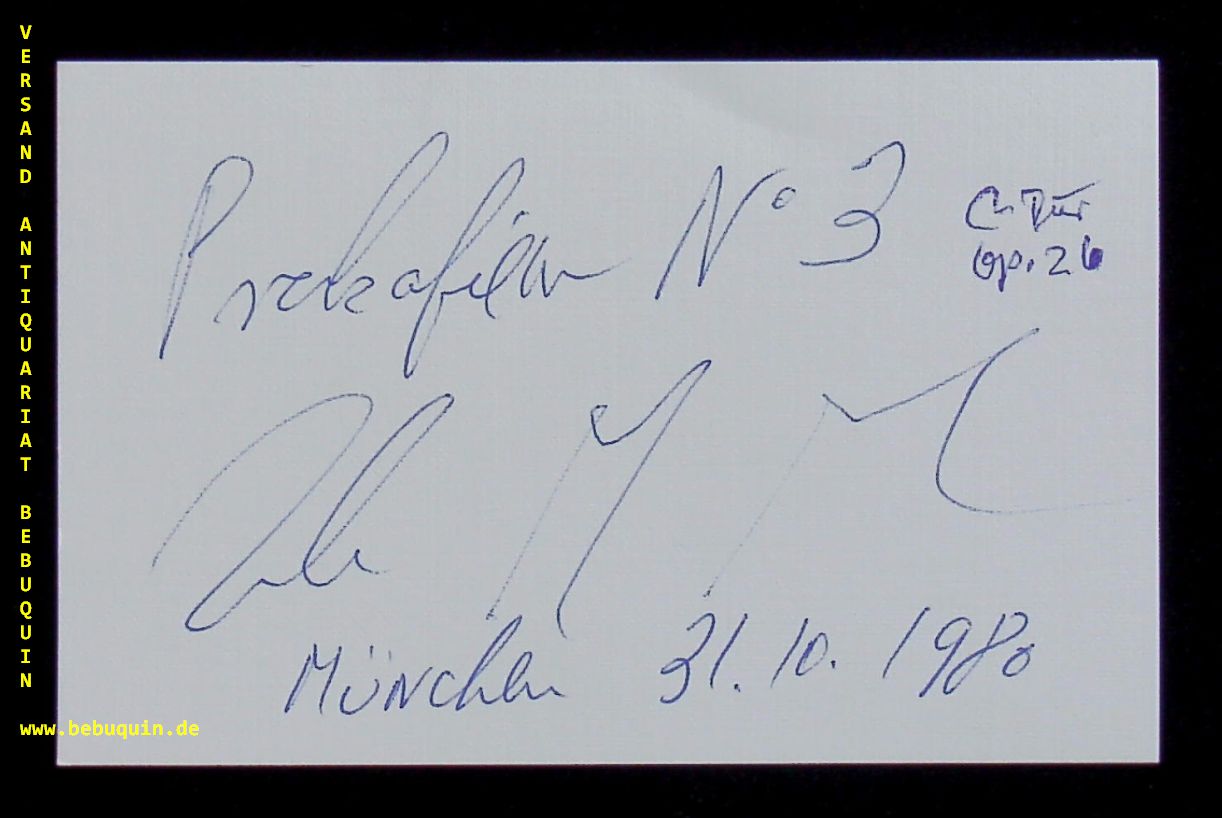 VERSAND ANTIQUARIAT BEBUQUIN
Prokofieff N° 3
C-Dur
op. 26
München 31. 10. 1980
www.bebuquin.de